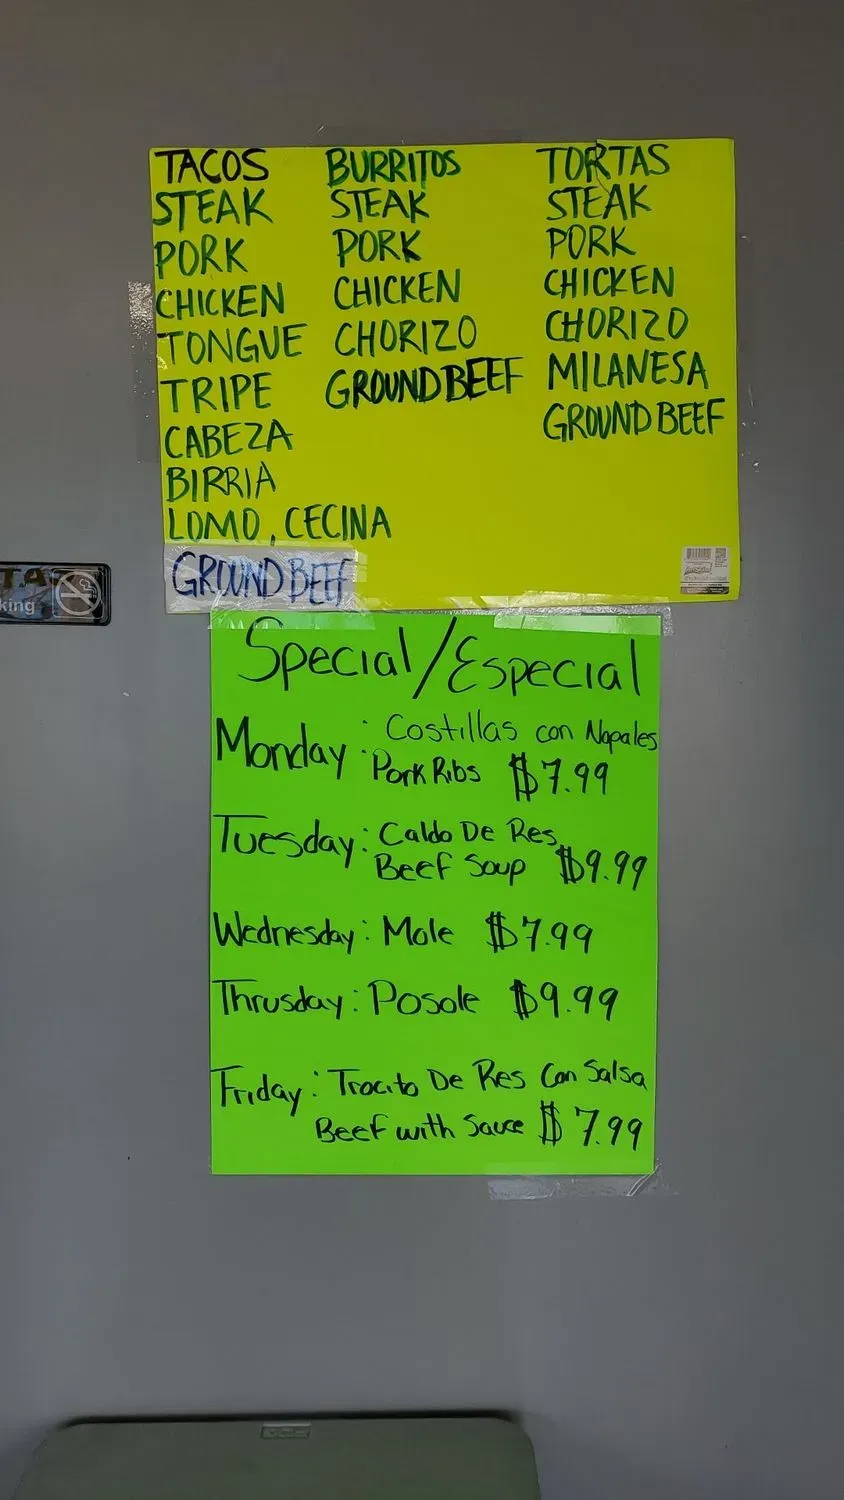 TACOS
STEAK
PORK
CHICKEN
TONGUE
TRIPE
CABEZA
BIRRIA
LOMO, CECINA
GROUND BEEF
BURRITOS
STEAK
PORK
CHICKEN
CHORIZO
GROUND BEEF
TORTAS
STEAK
PORK
CHICKEN
CHORIZO
MILANESA
GROUND BEEF
king
Special/Especial
Monday: Costillas con Nopales
Pork Ribs $7.99
Tuesday: Caldo De Res
Beef Soup $9.99
Wednesday: Mole $7.99
Thrusday: Posole $9.99
Friday: Trocito De Res Con Salsa
Beef with Sauce $7.99